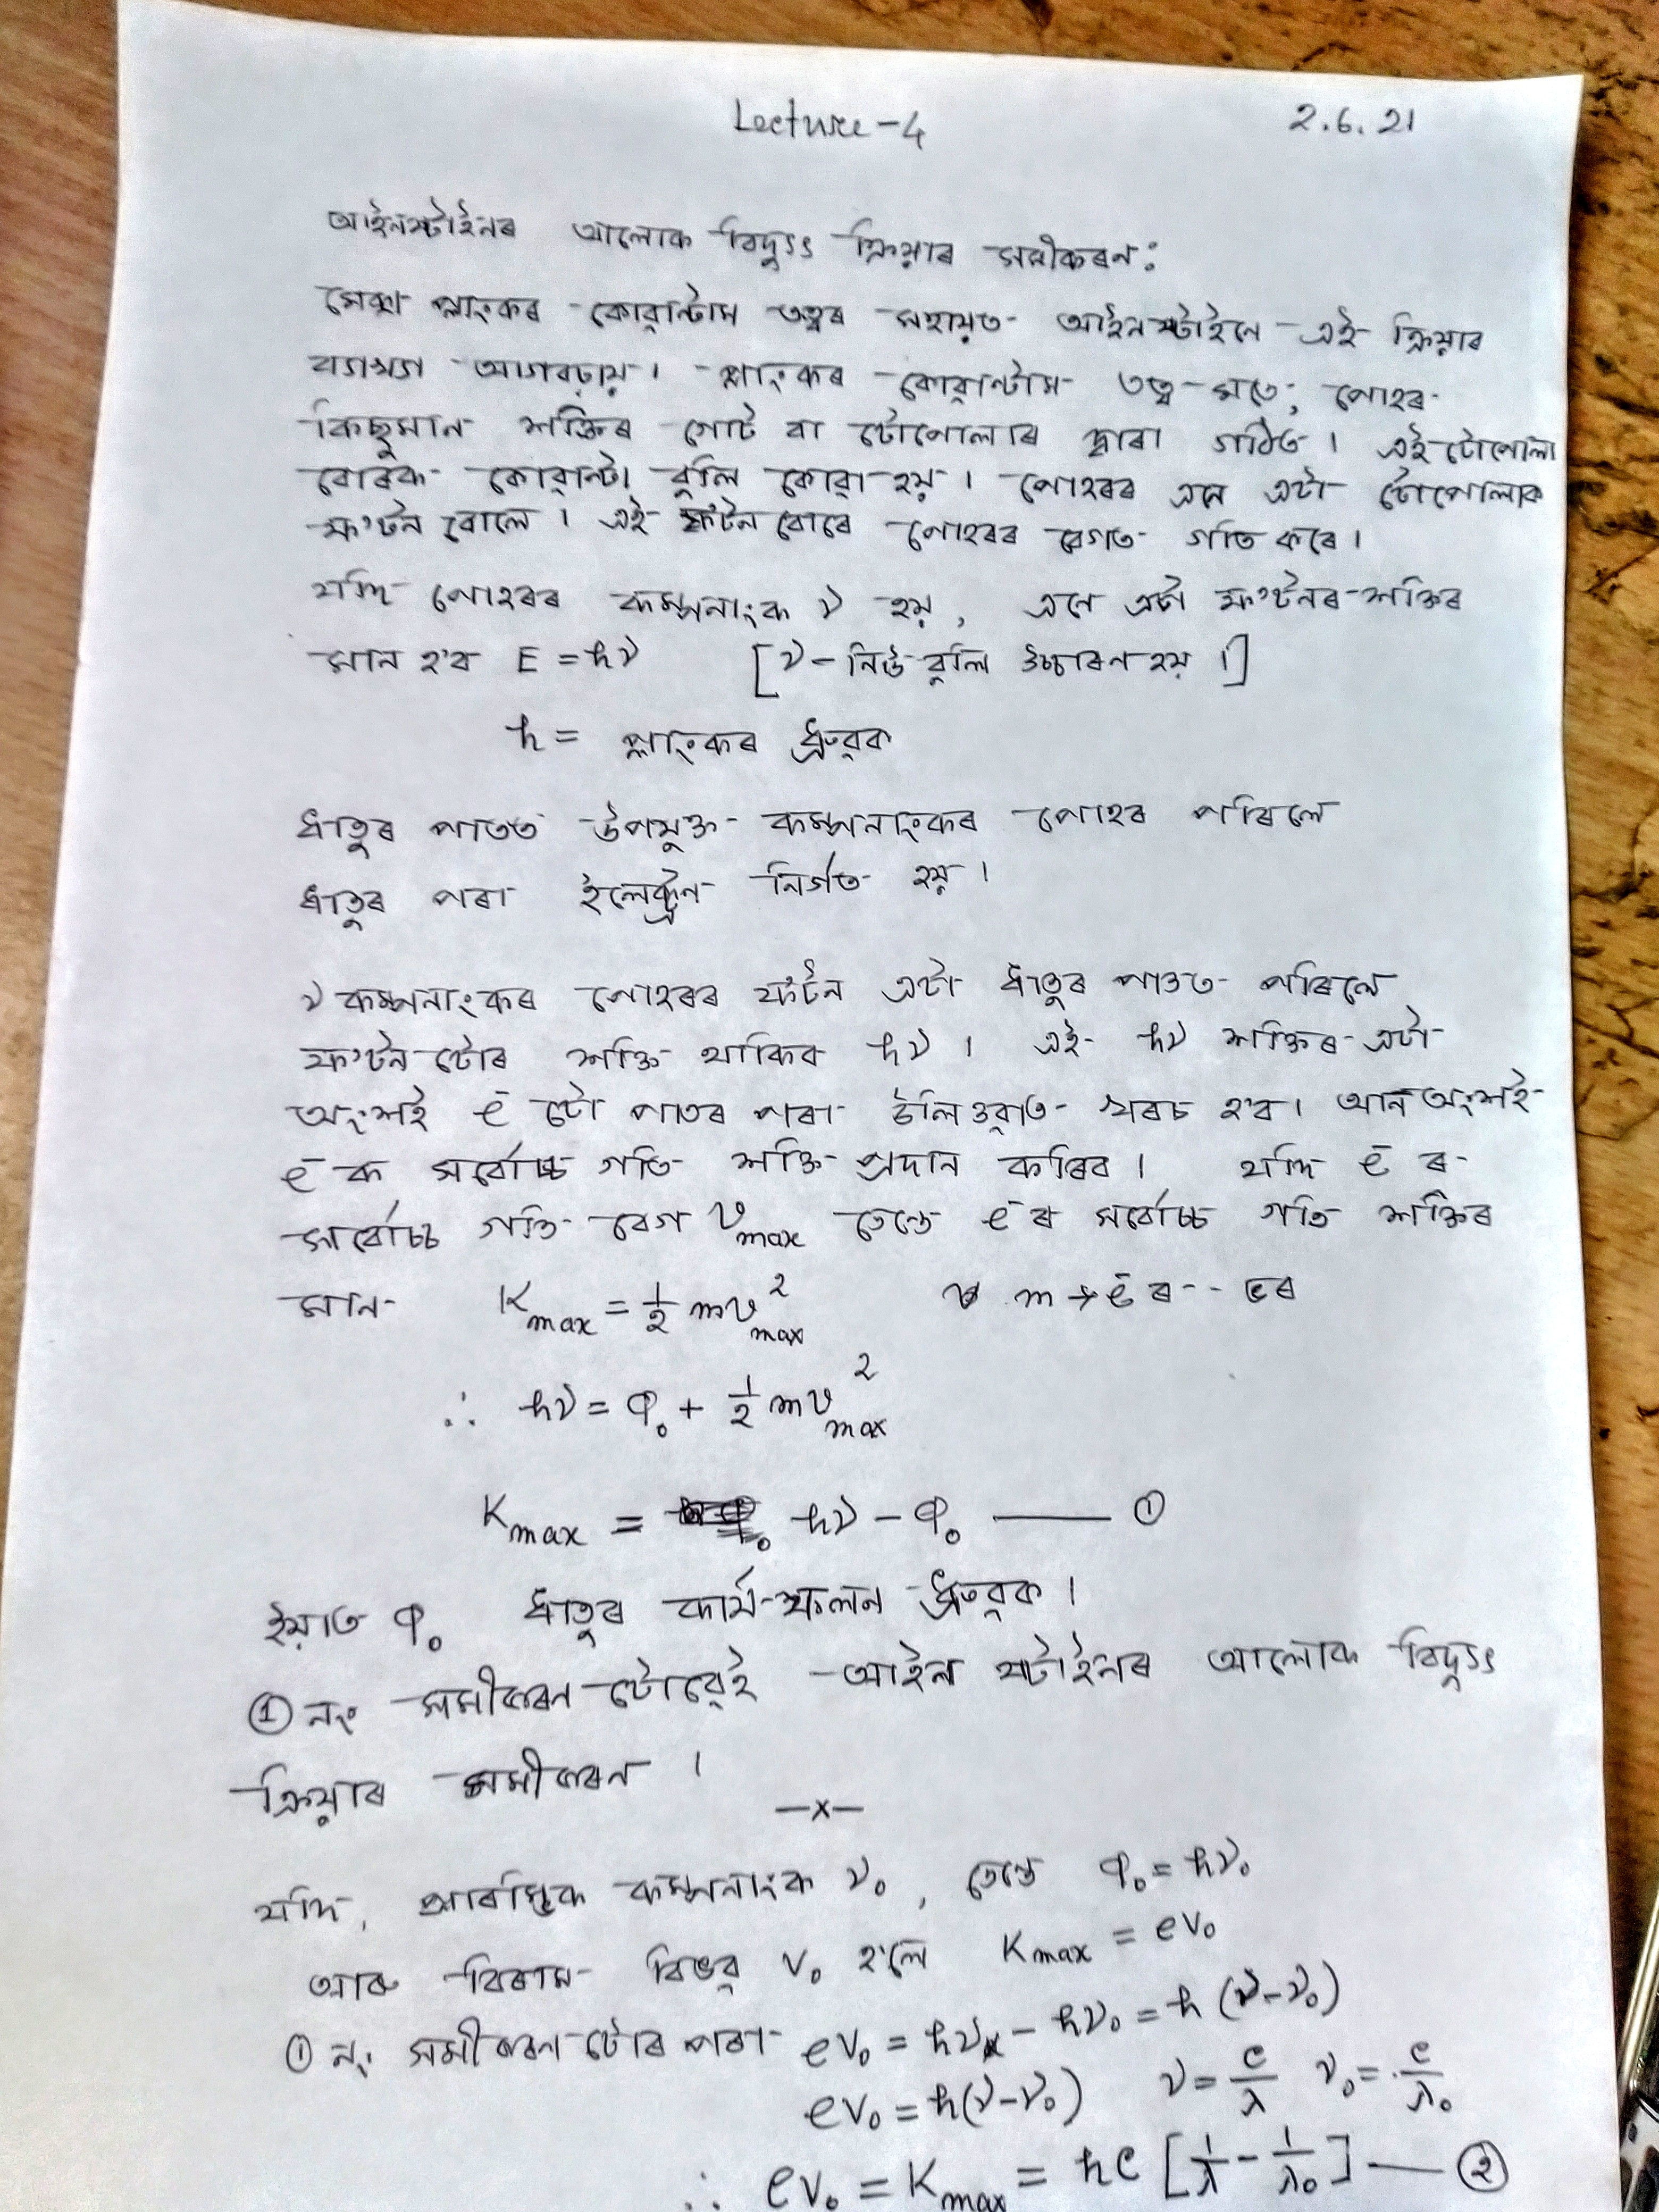 Lecture-4 2.6.21
আইনষ্টাইনৰ আলোক বিদ্যুৎ ক্ৰিয়াৰ সমীকৰন:
মেক্স প্লাংকৰ কোৱান্টাম তত্বৰ সহায়ত আইনষ্টাইনে এই ক্ৰিয়াৰ
ব্যাখ্যা আগবঢ়ায়। প্লাংকৰ কোৱান্টাম তত্ব মতে, পোহৰ
কিছুমান শক্তিৰ গোট বা টোপোলাৰ দ্বাৰা গঠিত। এই টোপোলা
বোৰক কোৱান্টা বুলি কোৱা হয়। পোহৰৰ এনে এটা টোপোলাক
ফ'টন বোলে। এই ফ'টন বোৰে পোহৰৰ বেগত গতি কৰে।
যদি পোহৰৰ কম্পনাংক ν হয়, এনে এটা ফ'টনৰ শক্তিৰ
মান হ'ব E = hν [ν – নিউ বুলি উচ্চাৰন হয়।]
h = প্লাংকৰ ধ্ৰুৱক
ধাতুৰ পাতত উপযুক্ত কম্পনাংকৰ পোহৰ পৰিলে
ধাতুৰ পৰা ইলেক্ট্ৰন নিৰ্গত হয়।
ν কম্পনাংকৰ পোহৰৰ ফ'টন এটা ধাতুৰ পাতত পৰিলে
ফ'টন টোৰ শক্তি থাকিব hν। এই hν শক্তিৰ এটা
অংশই e⁻ টো পাতৰ পৰা উলিওৱাত খৰচ হ'ব। আন অংশই
e⁻ ক সৰ্বোচ্চ গতি শক্তি প্ৰদান কৰিব। যদি e⁻ ৰ
সৰ্বোচ্চ গতি বেগ v_max তেন্তে e⁻ ৰ সৰ্বোচ্চ গতি শক্তিৰ
মান K_max = ½ mv²_max m → e⁻ ৰ ভৰ
∴ hν = φ₀ + ½ mv²_max
K_max = hν – φ₀ —— ①
ইয়াত φ₀ ধাতুৰ কাৰ্য ফলন ধ্ৰুৱক।
① নং সমীকৰন টোৱেই আইন ষ্টাইনৰ আলোক বিদ্যুৎ
ক্ৰিয়াৰ সমীকৰন।
—x—
যদি, প্ৰাৰম্ভিক কম্পনাংক ν₀, তেন্তে φ₀ = hν₀
আৰু বিৰাম বিভৱ V₀ হ'লে K_max = eV₀
① নং সমীকৰন টোৰ পৰা eV₀ = hν – hν₀ = h(ν – ν₀)
eV₀ = h(ν – ν₀) ν = c/λ ν₀ = c/λ₀
∴ eV₀ = K_max = hc [1/λ – 1/λ₀] —— ②